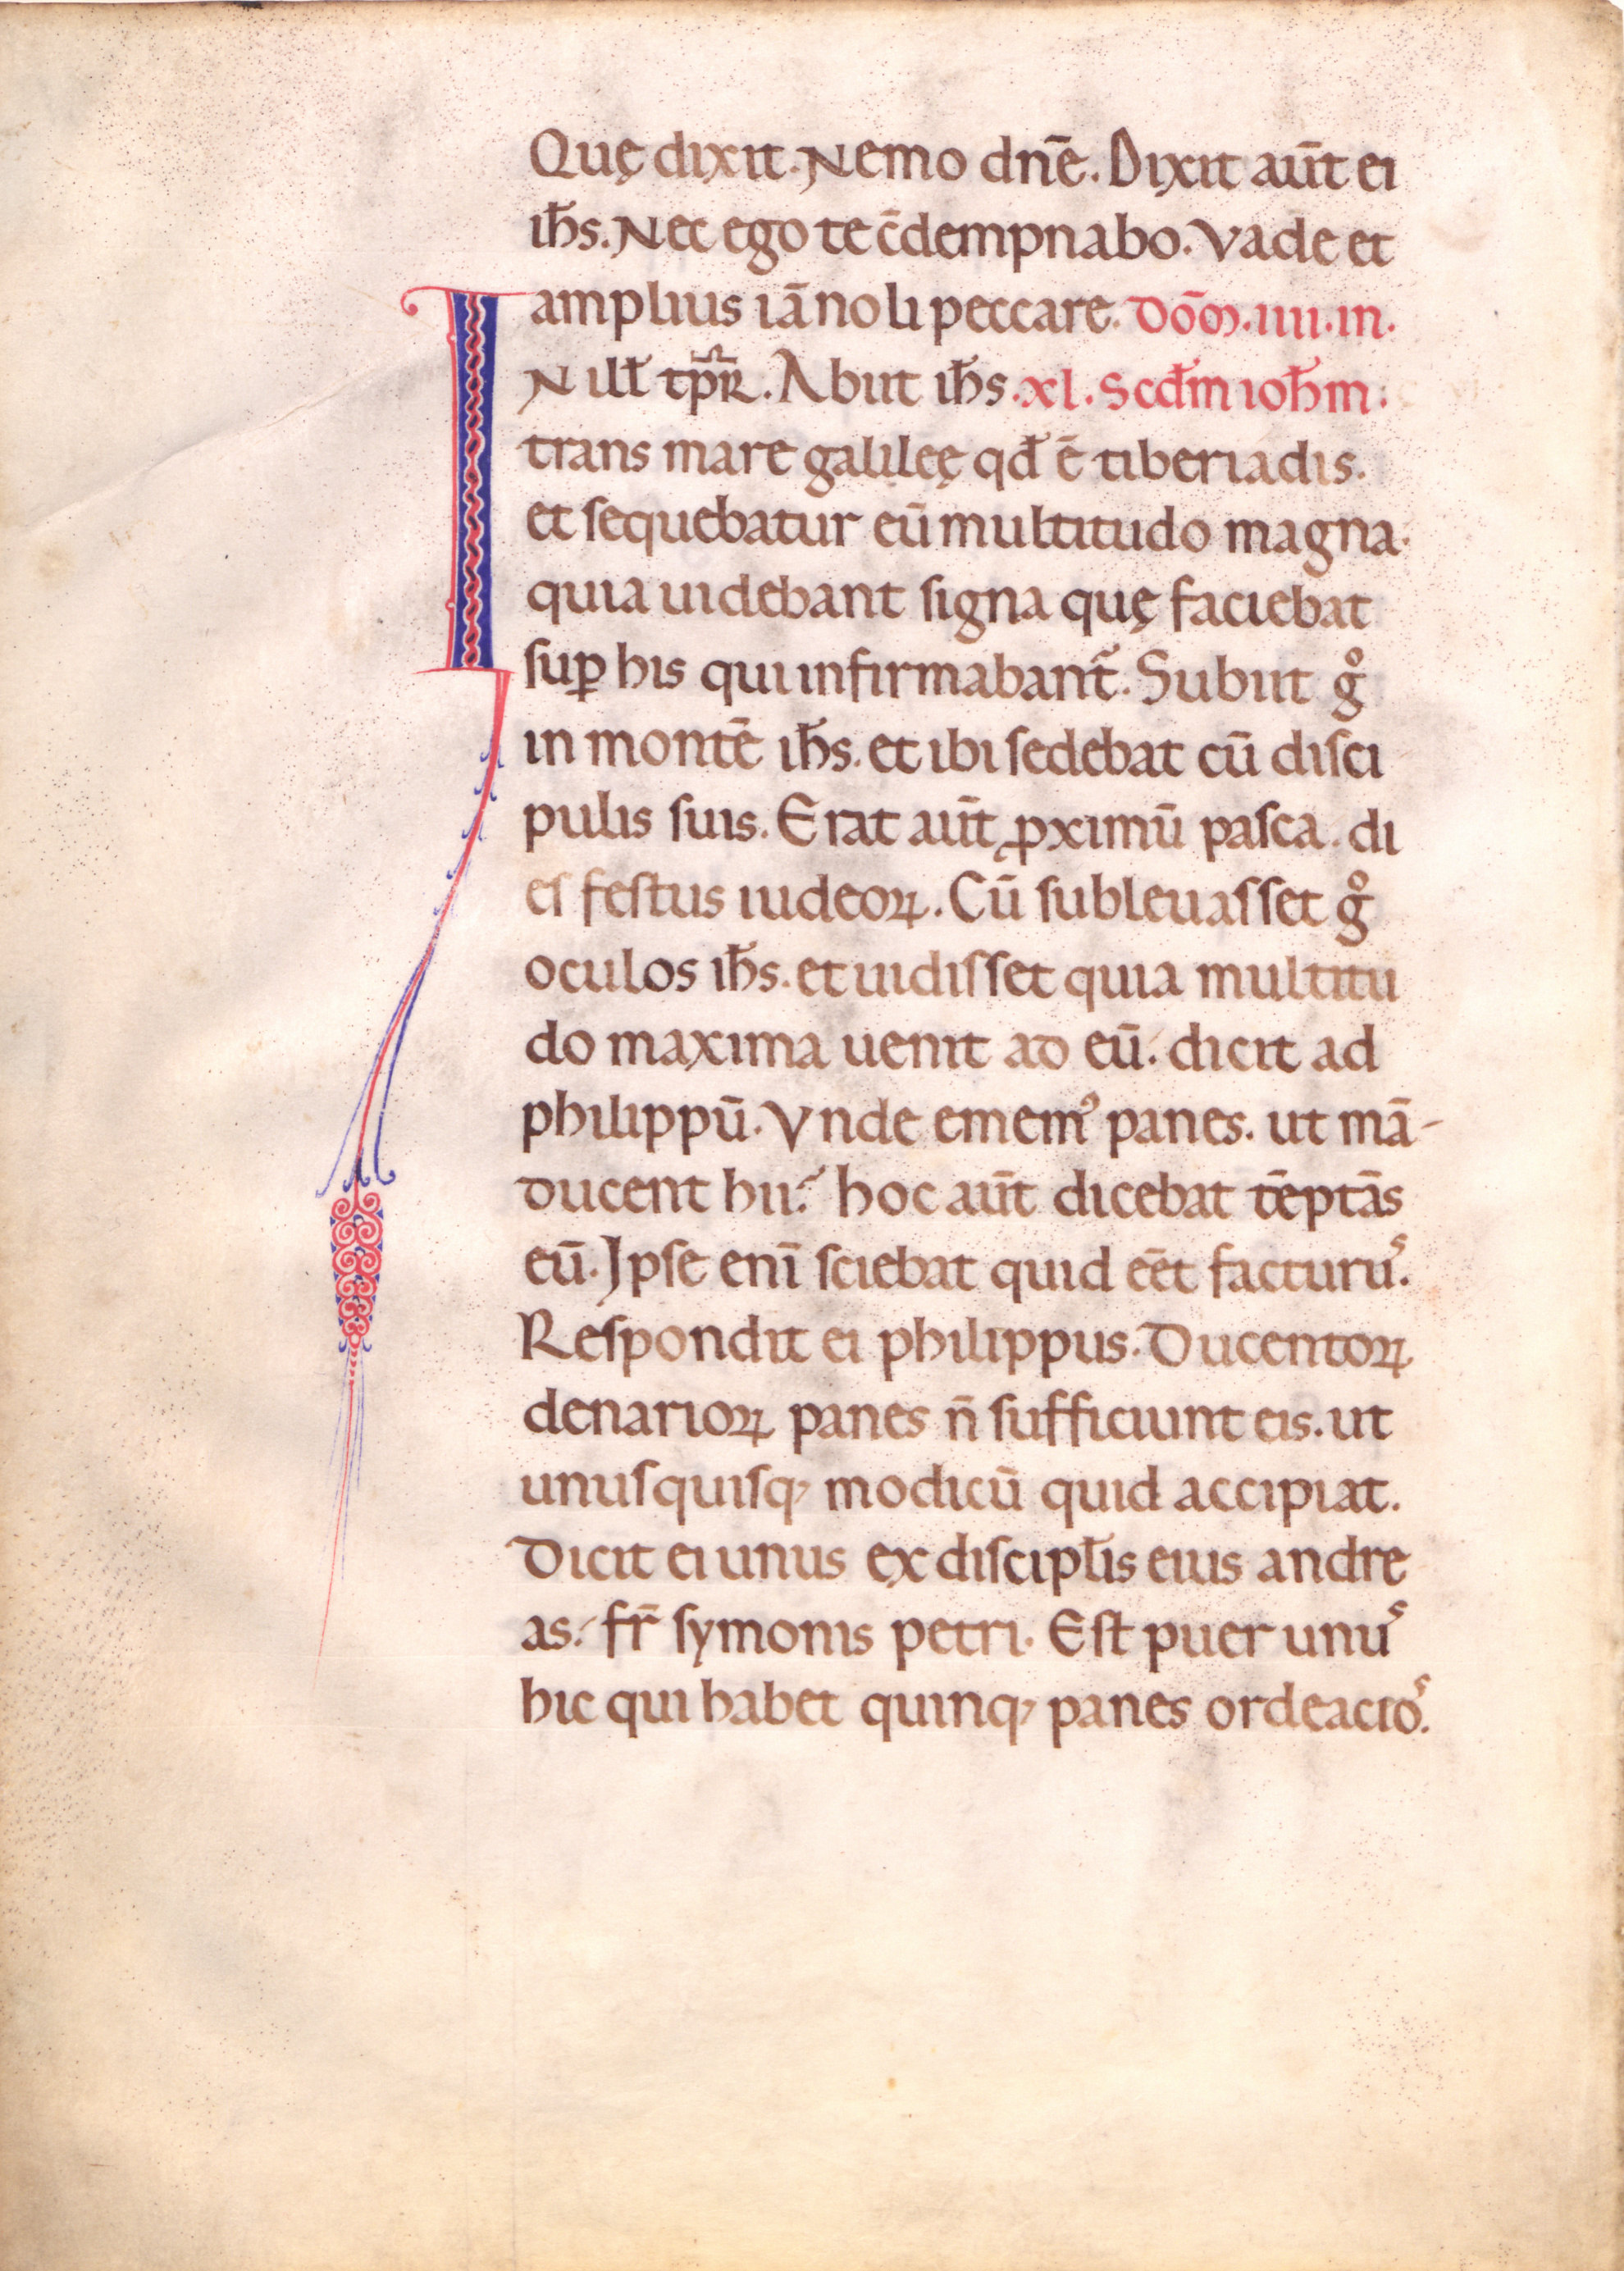 Quę dixit. Nemo dn̄e. Dixit aūt ei
ih̄s. Nec ego te c̄dempnabo. Vade et
amplius iā noli peccare. Dōm. IIII. in.
IN ill̄ tp̄r. Abiit ih̄s .xl. Scd̄m ioh̄m:
trans mare galileę qd̄ ē tiberiadis.
et sequebatur eū multitudo magna.
quia uidebant signa quę faciebat
suꝑ his qui infirmabant᷑. Subiit gͦ
in montē ih̄s. et ibi sedebat cū disci
pulis suis. Erat aūt ꝓximū pasca. di
es festus iudeoꝝ. Cū subleuasset gͦ
oculos ih̄s. et uidisset quia multitu
do maxima uenit ad eū. dicit ad
philippū. Vnde ememꝰ panes. ut mā-
ducent hii? hoc aūt dicebat tēptās
eū. Ipse eni᷑ sciebat quid eēt facturuˢ.
Respondit ei philippus. Ducentoꝝ
denarioꝝ panes n̄ sufficiunt eis. ut
unusquisq; modicū quid accipiat.
Dicit ei unus ex discipl̄is eius andre
as. fr̄ symonis petri. Est puer unuˢ
hic qui habet quinq; panes ordeacioˢ.